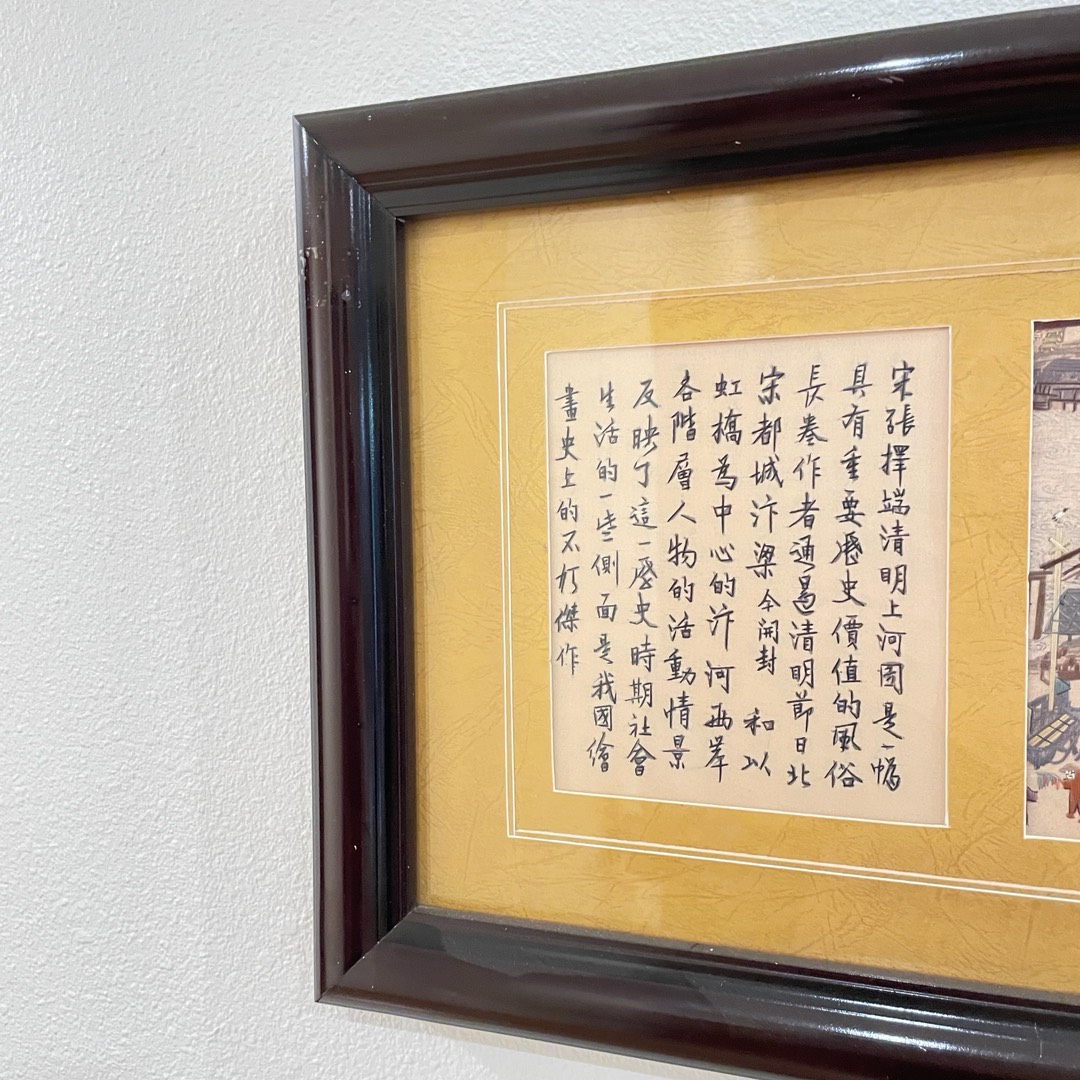 宋張擇端清明上河圖是一幅
具有重要歷史價值的風俗
長卷作者通過清明節日北
宋都城汴梁今開封 和以
虹橋為中心的汴河兩岸
各階層人物的活動情景
反映了這一歷史時期社會
生活的一些側面是我國繪
畫史上的不朽傑作